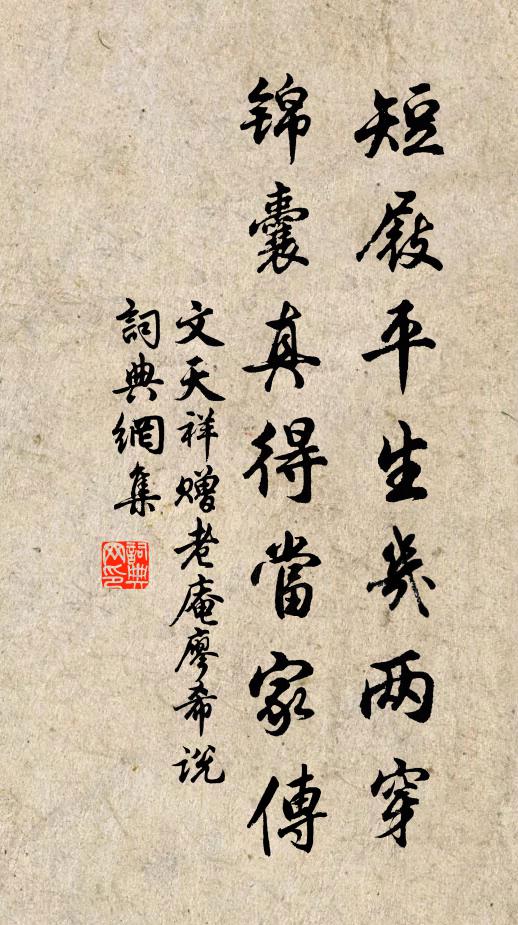 短屐平生幾两穿
锦囊真得當家傳
文天祥赠老庵廖希说
詞典網集
詞典网印